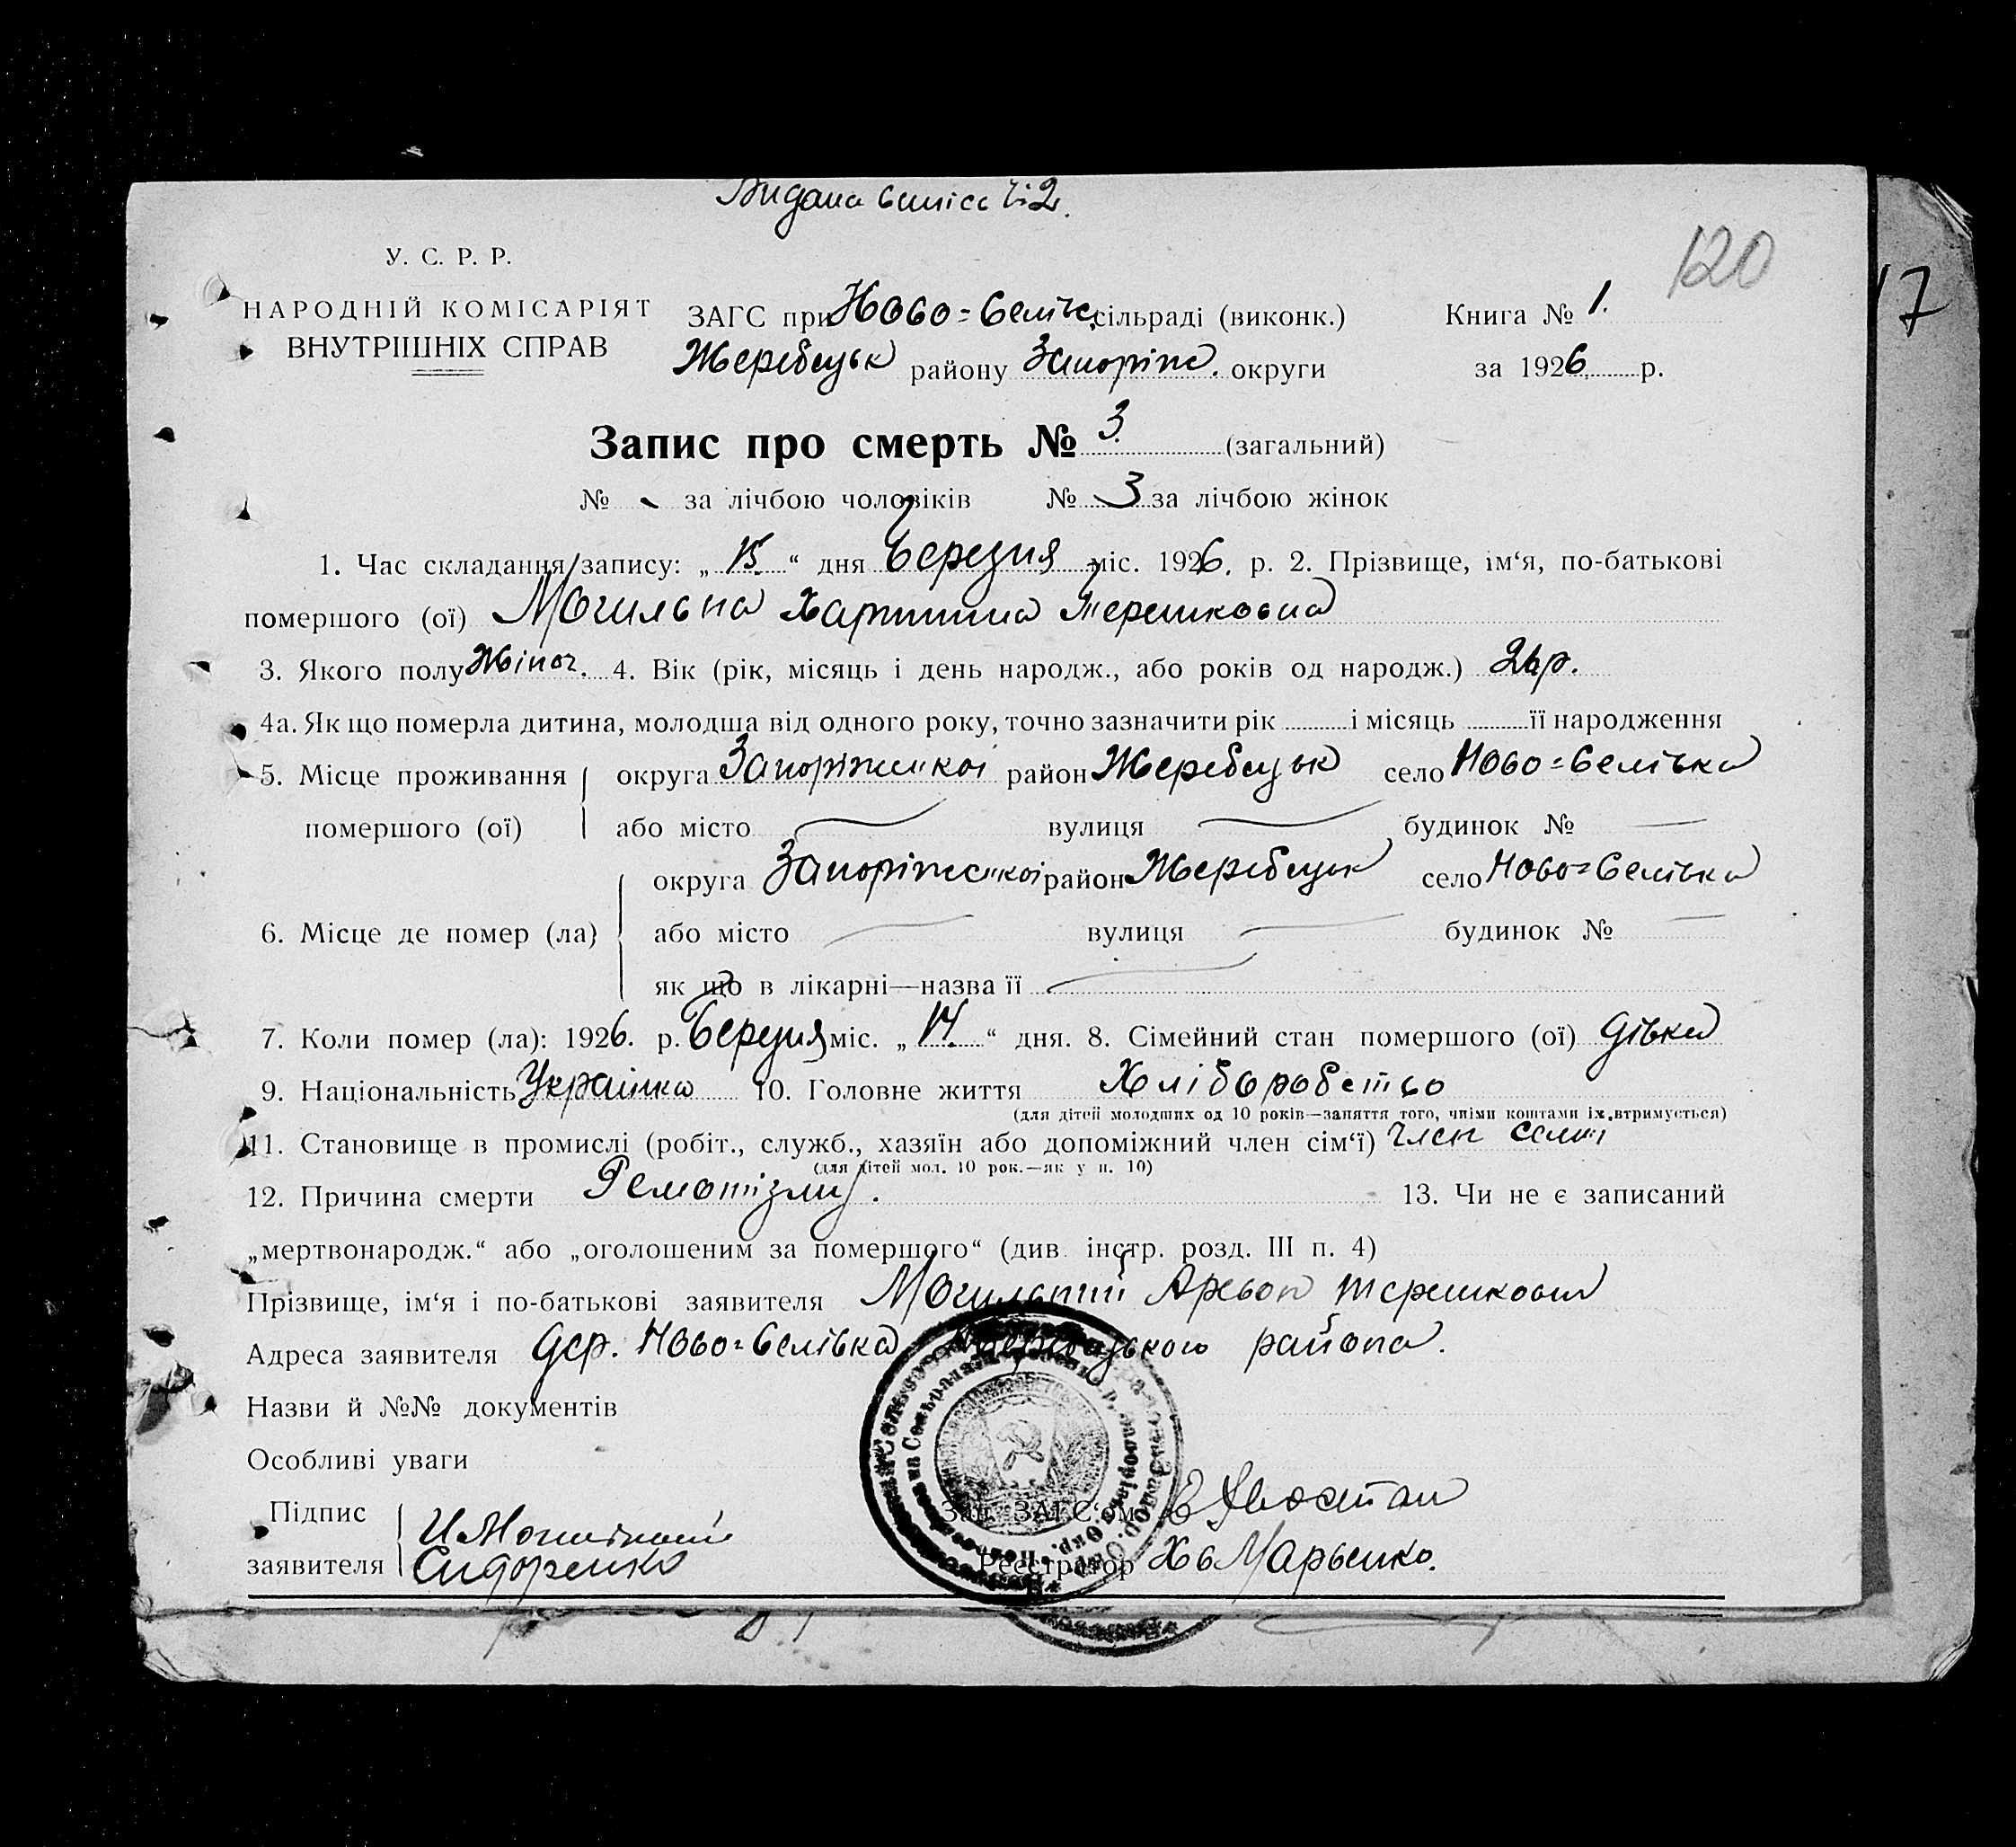 Видана
120
17
У. С. Р. Р.
НАРОДНІЙ КОМІСАРІЯТ
ВНУТРІШНІХ СПРАВ
ЗАГС при Ново=Селівс. сільраді (виконк.)
Книга № 1.
Жеребецьк району Запоріж. округи
за 1926 р.
Запис про смерть № 3. (загальний)
№ - за лічбою чоловіків № 3 за лічбою жінок
1. Час складання запису: „ 15. “ дня Березня міс. 1926. р. 2. Прізвище, ім‘я, по-батькові
помершого (ої) Могильна Харитина Терешковна
3. Якого полу Жіноч. 4. Вік (рік, місяць і день народж., або років од народж.) 26 р.
4а. Як що померла дитина, молодша від одного року, точно зазначити рік і місяць її народження
5. Місце проживання помершого (ої) округа Запоріжської район Жеребецьк село Ново=Селівка
або місто — вулиця — будинок № —
6. Місце де помер (ла) округа Запоріжської район Жеребецьк село Ново=Селівка
або місто — вулиця — будинок № —
як що в лікарні—назва її —
7. Коли помер (ла): 1926. р. Березня міс. „ 14. “ дня. 8. Сімейний стан помершого (ої) дівка
9. Національність Українка 10. Головне життя Хліборобство
(для дітей молодших од 10 років—заняття того, чиїми коштами їх втримується)
11. Становище в промислі (робіт., служб., хазяїн або допоміжний член сім‘ї) член семї
(для дітей мол. 10 рок.—як у п. 10)
12. Причина смерти Ремотізму. 13. Чи не є записаний
„мертвонародж.“ або „оголошеним за помершого“ (див. інстр. розд. III п. 4)
Прізвище, ім‘я і по-батькові заявителя Могильний Терешкович
Адреса заявителя дер. Ново=Селівка Жеребецького района.
Назви й №№ документів
Особливі уваги
Підпис заявителя
Сидоренко
Зав. ЗАГС‘ом
Реєстратор Марченко.